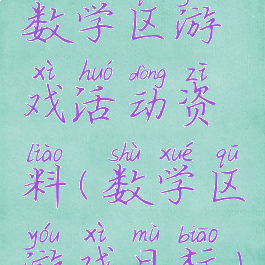 数学区游
xì huó dòng zī
戏活动资
liào shù xué qū
料(数学区
yóu xì mù biāo
游戏目标)